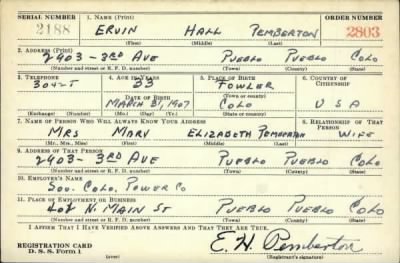 SERIAL NUMBER 1. NAME (Print) ORDER NUMBER
2188 ERVIN HALL PEMBERTON 2803
(First) (Middle) (Last)
2. ADDRESS (Print)
2903-3RD AVE PUEBLO PUEBLO COLO
(Number and street or R. F. D. number) (Town) (County) (State)
3. TELEPHONE 4. AGE IN YEARS 5. PLACE OF BIRTH 6. COUNTRY OF CITIZENSHIP
33 FOWLER
DATE OF BIRTH (Town or county)
MARCH 31, 1907 COLO U S A
(Exchange) (Number) (Mo.) (Day) (Yr.) (State or country)
7. NAME OF PERSON WHO WILL ALWAYS KNOW YOUR ADDRESS 8. RELATIONSHIP OF THAT PERSON
MRS MARY ELIZABETH PEMBERTON WIFE
(Mr., Mrs., Miss) (First) (Middle) (Last)
9. ADDRESS OF THAT PERSON
2903-3RD AVE PUEBLO PUEBLO COLO
(Number and street or R. F. D. number) (Town) (County) (State)
10. EMPLOYER'S NAME
SOU. COLO. POWER CO
11. PLACE OF EMPLOYMENT OR BUSINESS
N. MAIN ST PUEBLO PUEBLO COLO
(Number and street or R. F. D. number) (Town) (County) (State)
I AFFIRM THAT I HAVE VERIFIED ABOVE ANSWERS AND THAT THEY ARE TRUE.
REGISTRATION CARD
D. S. S. Form 1 (over) E. H. Pemberton
(Registrant's signature)